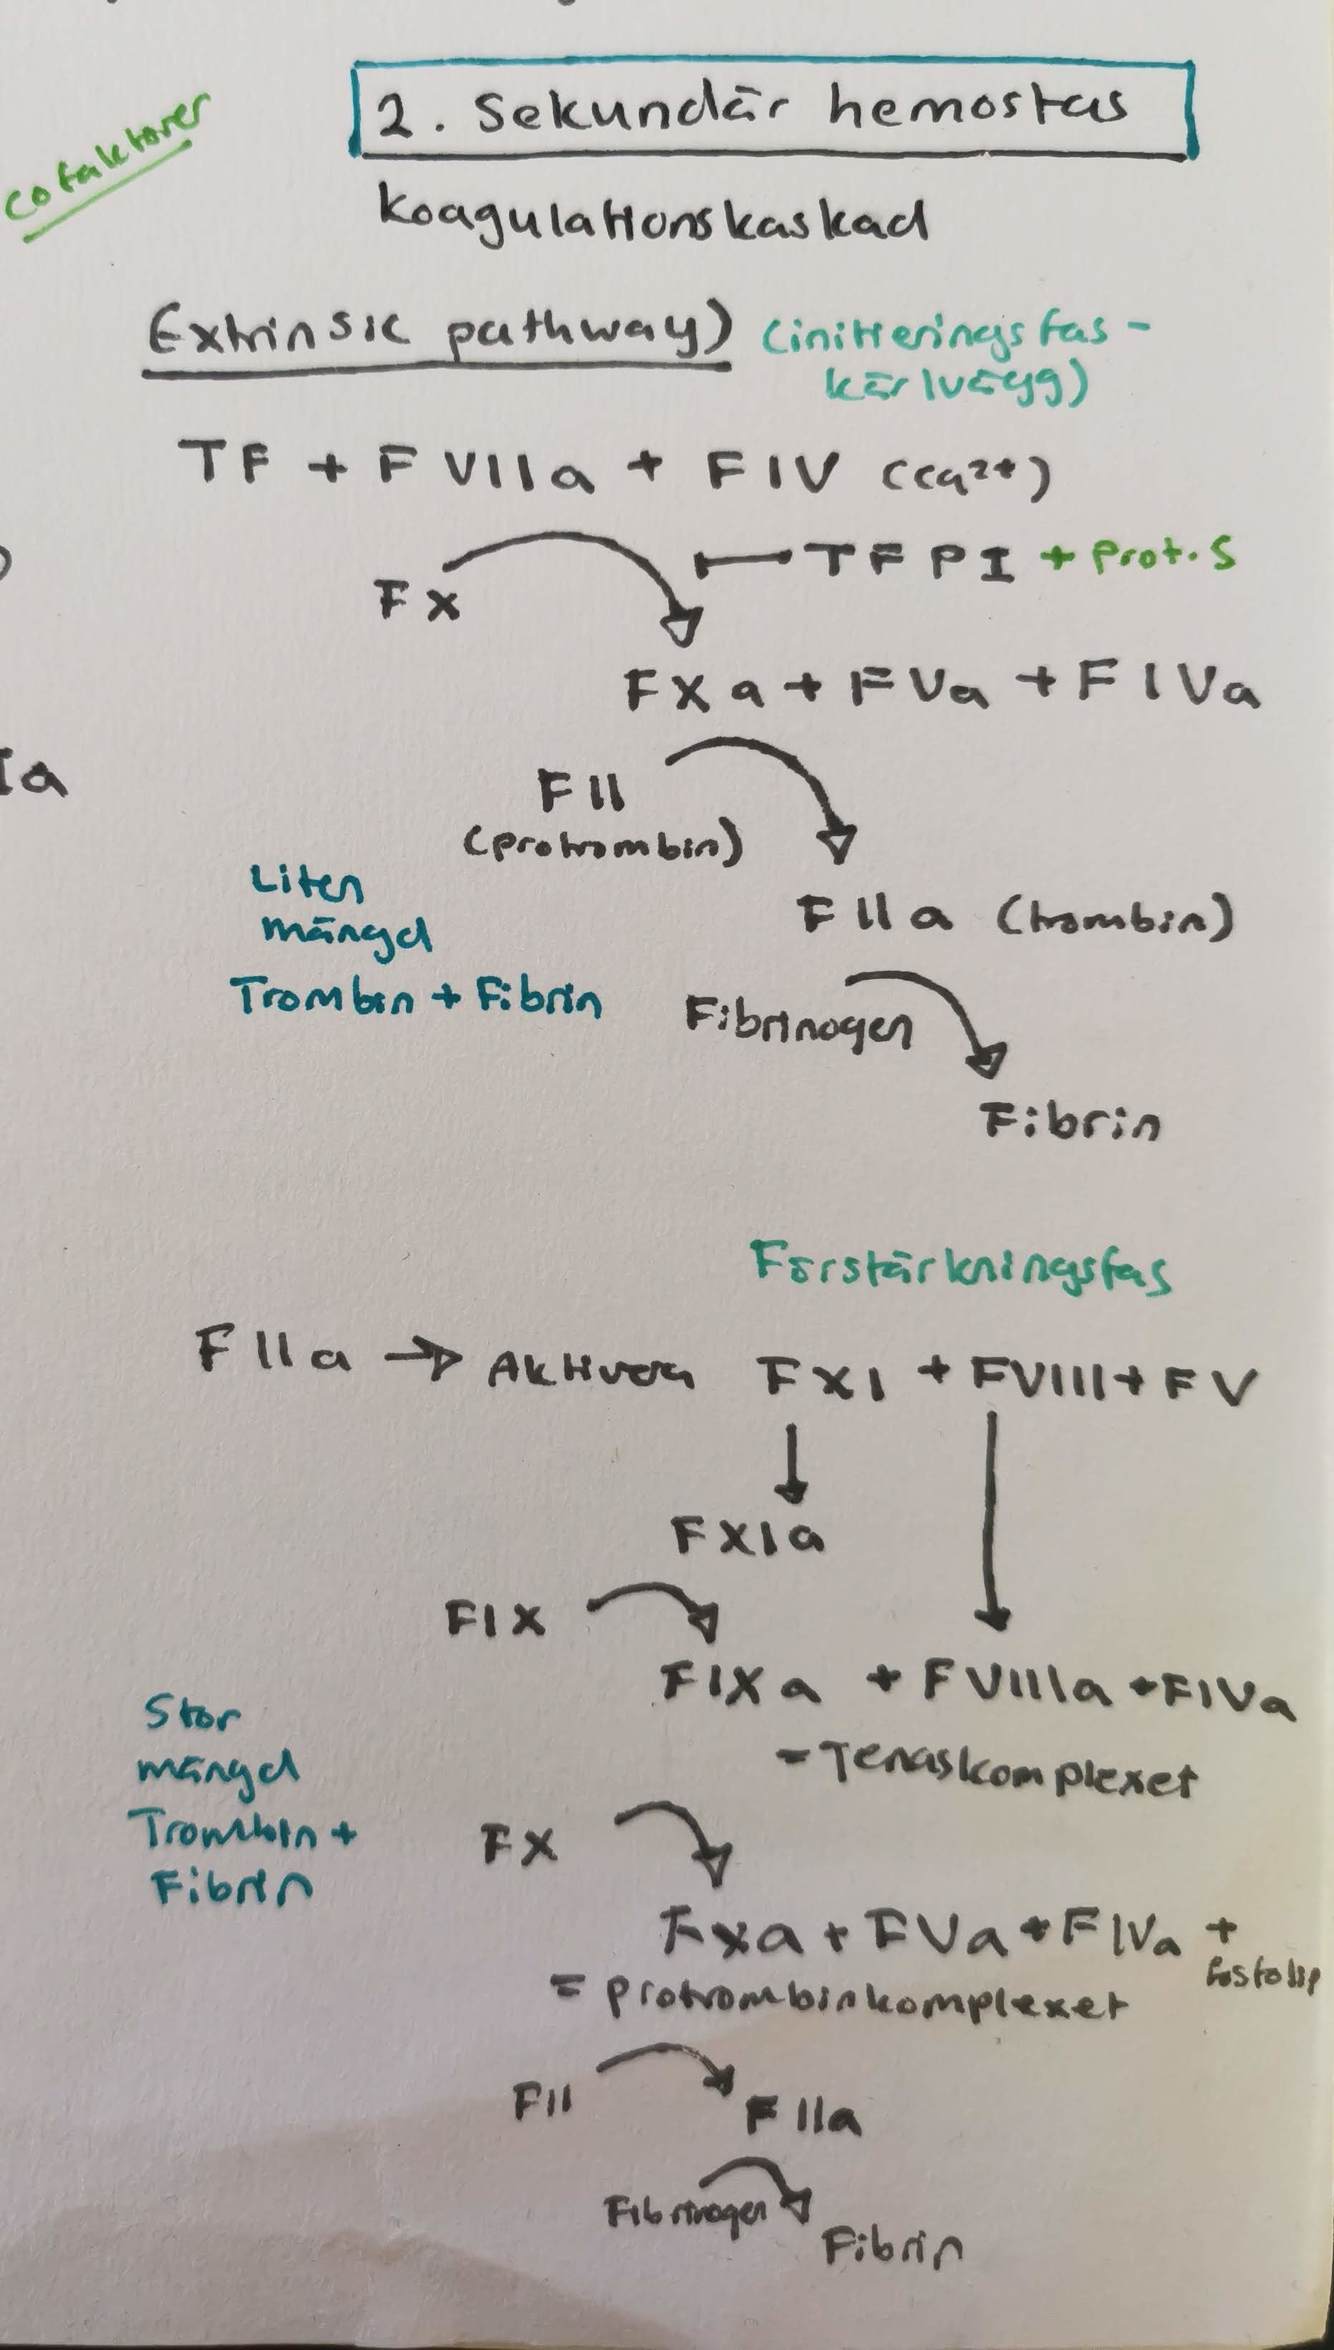 cofaktorer
2. Sekundär hemostas
Koagulationskaskad
Extrinsic pathway) (initieringsfas -
kärlvägg)
TF + FVIIa + FIV (Ca²⁺)
TFPI + Prot.S
FX
FXa + FVa + FIVa
Ia
FII
(protrombin)
Liten
mängd
Trombin + Fibrin
FIIa (trombin)
Fibrinogen
Fibrin
Förstärkningsfas
FIIa → Aktivera FXI + FVIII + FV
FXIa
FIX
FIXa + FVIIIa + FIVa
= Tenaskomplexet
Stor
mängd
Trombin +
Fibrin
FX
FXa + FVa + FIVa +
fosfolip
= protrombinkomplexet
FII
FIIa
Fibrinogen
Fibrin